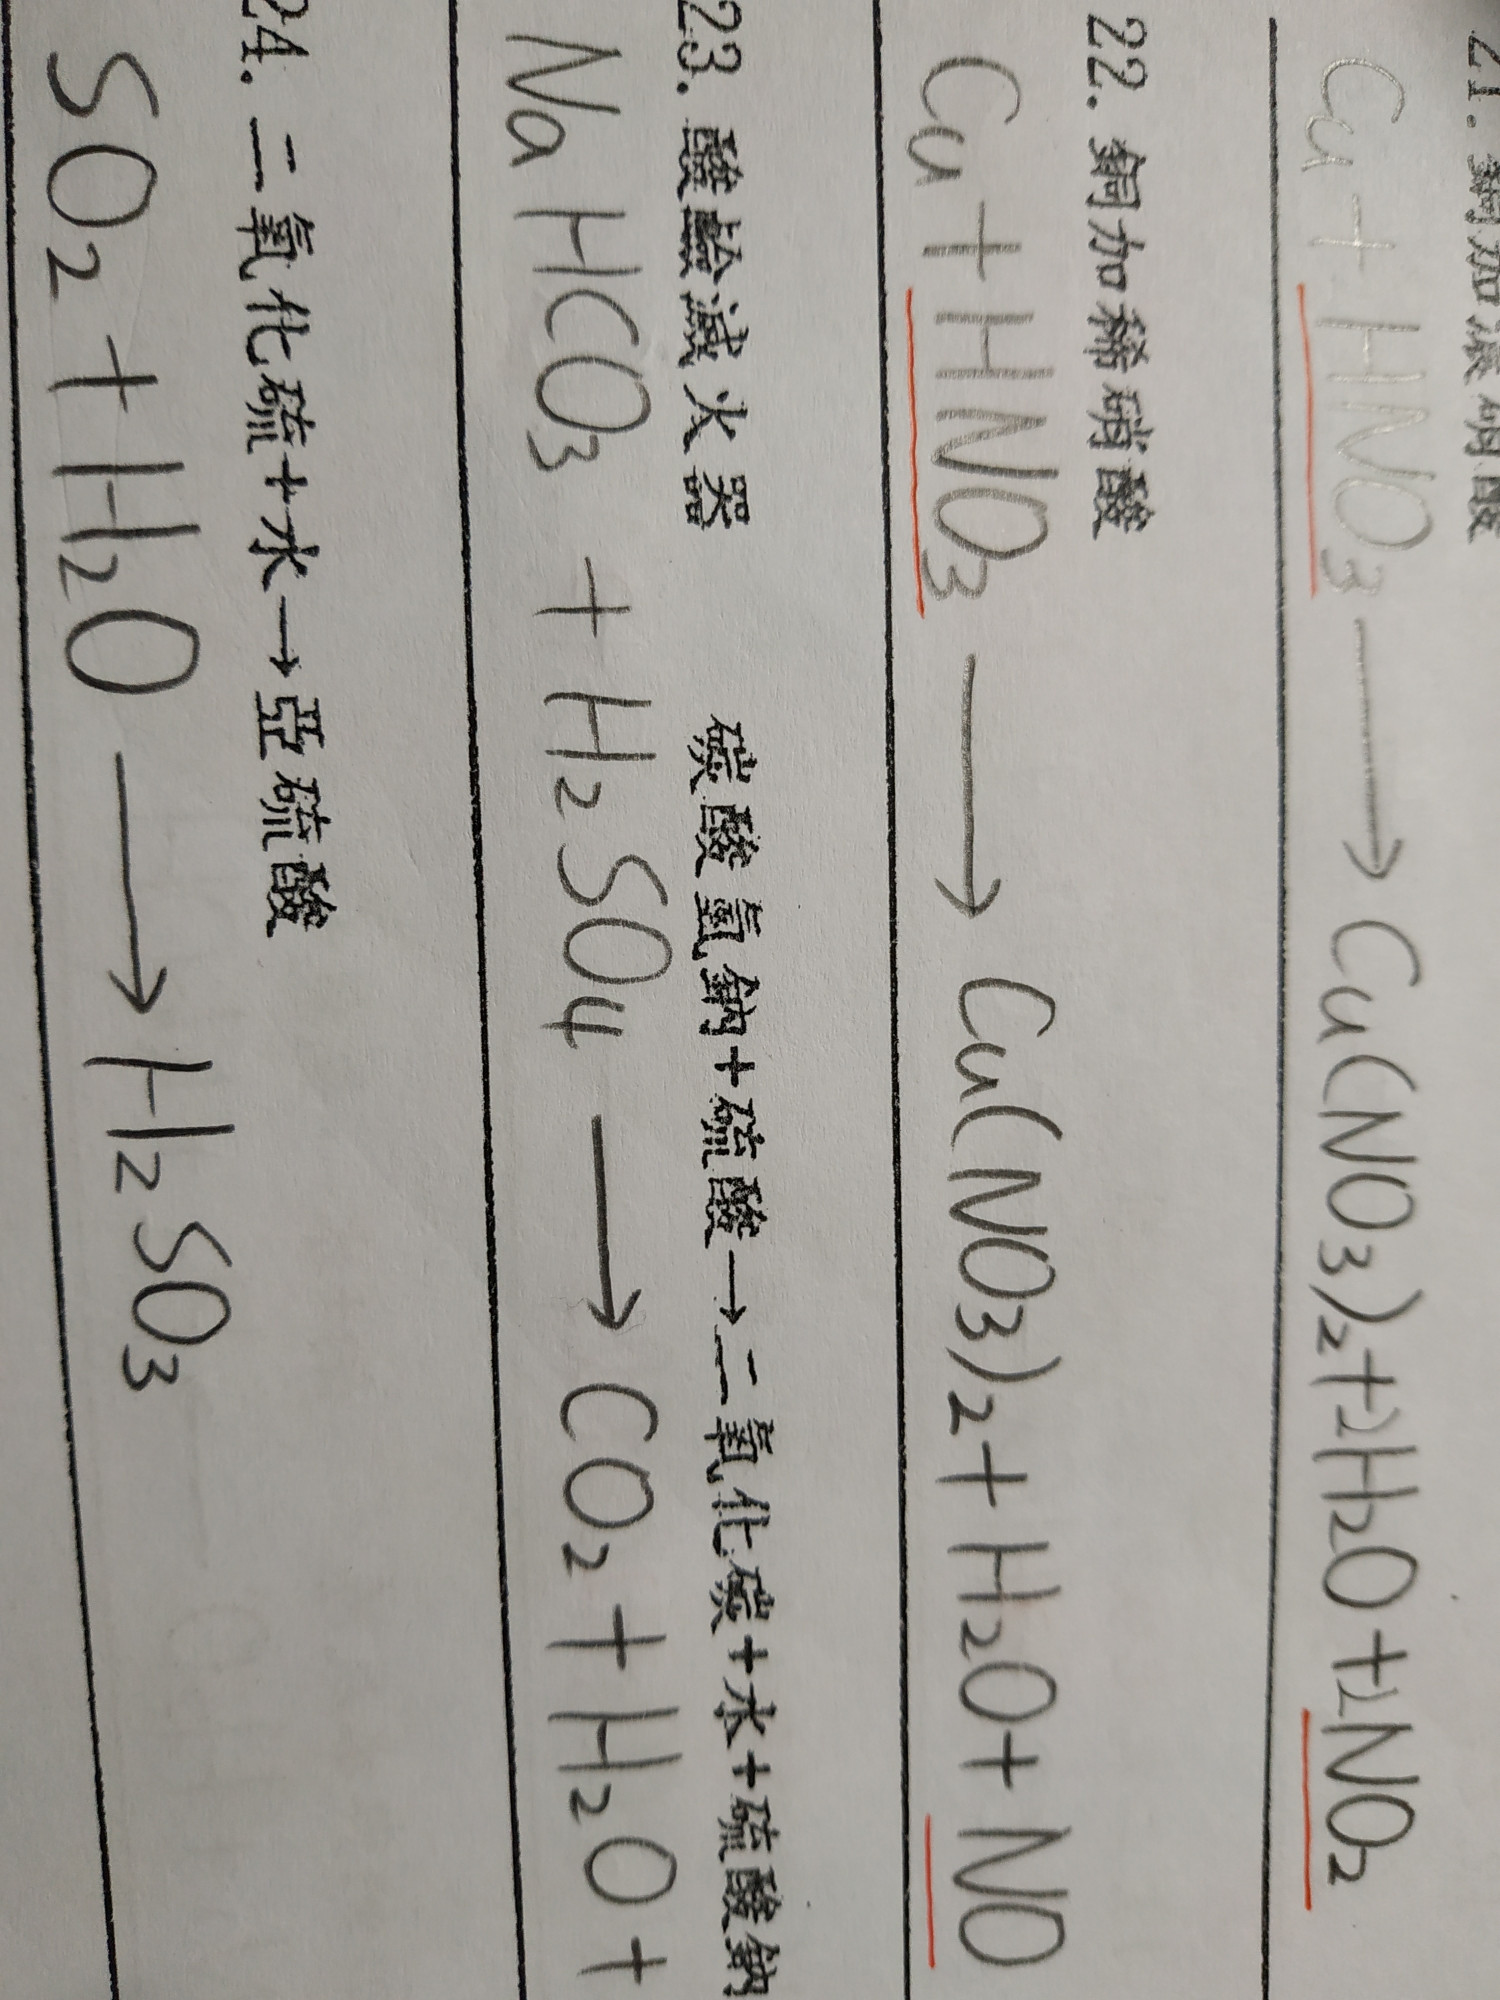 21. 銅加濃硝酸
Cu + HNO₃ → Cu(NO₃)₂+2H₂O+2NO₂
22. 銅加稀硝酸
Cu + HNO₃ → Cu(NO₃)₂+ H₂O+ NO
23. 酸鹼滅火器 碳酸氫鈉+硫酸→二氧化碳+水+硫酸鈉
NaHCO₃ + H₂SO₄ → CO₂ + H₂O +
24. 二氧化硫+水→亞硫酸
SO₂ + H₂O → H₂SO₃